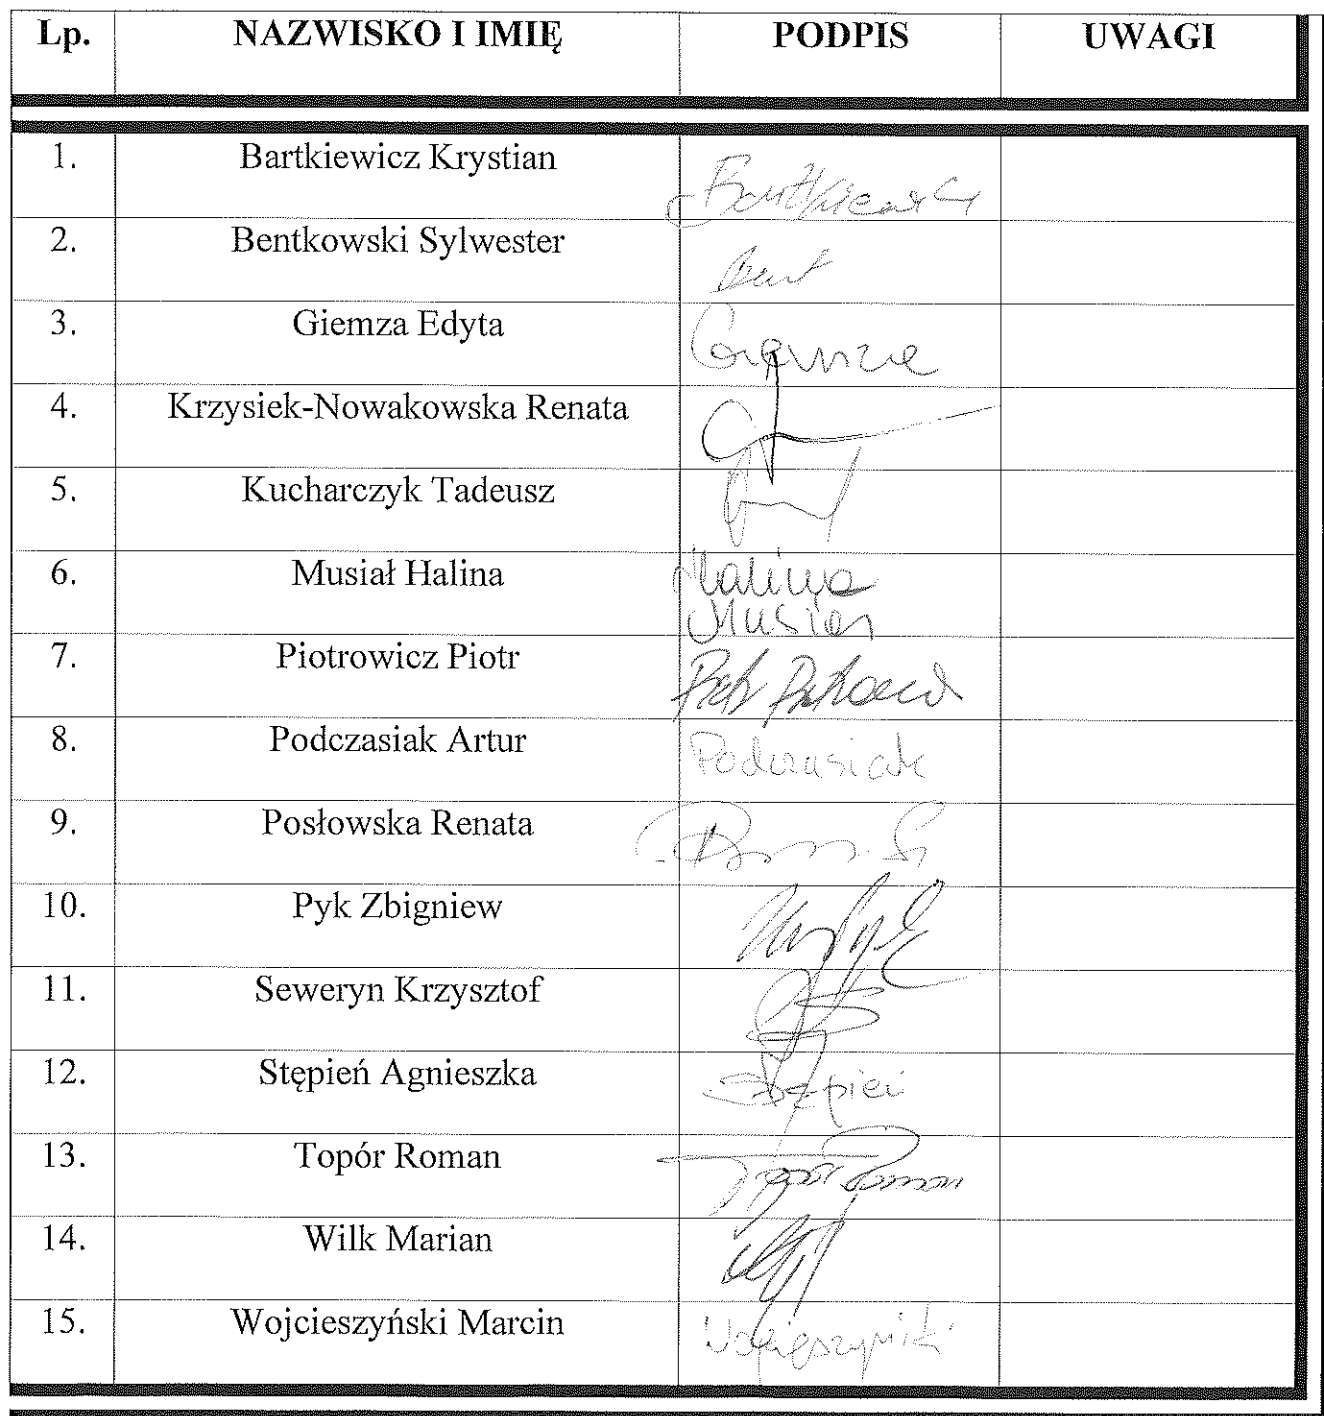 Lp. NAZWISKO I IMIĘ PODPIS UWAGI
1. Bartkiewicz Krystian
2. Bentkowski Sylwester
3. Giemza Edyta
4. Krzysiek-Nowakowska Renata
5. Kucharczyk Tadeusz
6. Musiał Halina Halina
Musiał
7. Piotrowicz Piotr Piotr
8. Podczasiak Artur Podczasiak
9. Posłowska Renata
10. Pyk Zbigniew
11. Seweryn Krzysztof
12. Stępień Agnieszka Stępień
13. Topór Roman Topór Roman
14. Wilk Marian
15. Wojcieszyński Marcin